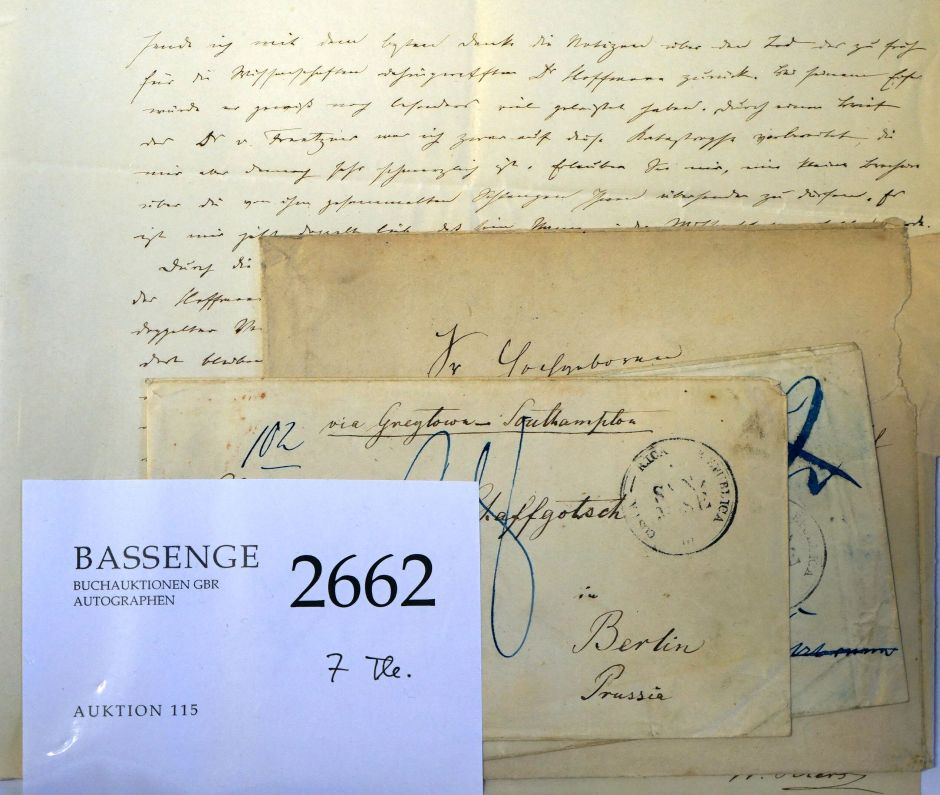 sende ich mit dem besten Dank die Notizen über den Tod des zu früh
für die Wissenschaften dahingerafften Dr Hoffmann zurück. Bei seinem Eifer
würde er gewiß noch besonders viel geleistet haben. Durch einen Brief
des Dr v. Frantzius war ich zwar auf diese Katastrophe vorbereitet, die
mir aber dennoch sehr schmerzlich ist. Erlauben Sie mir, eine kleine
über die von ihm gesammelten Schlangen Ihnen übersenden zu dürfen. Es
ist mir jetzt doppelt lieb, daß sein
Durch die
der Hoffmann
doppelten
dort bleiben
Sr Hochgeboren
via Greytown - Southampton
102
COSTA RICA REPUBLICA
SAN JOSE
Schaffgotsch
in
Berlin
Prussia
BASSENGE
BUCHAUKTIONEN GBR
AUTOGRAPHEN
2662
7 Tle.
AUKTION 115